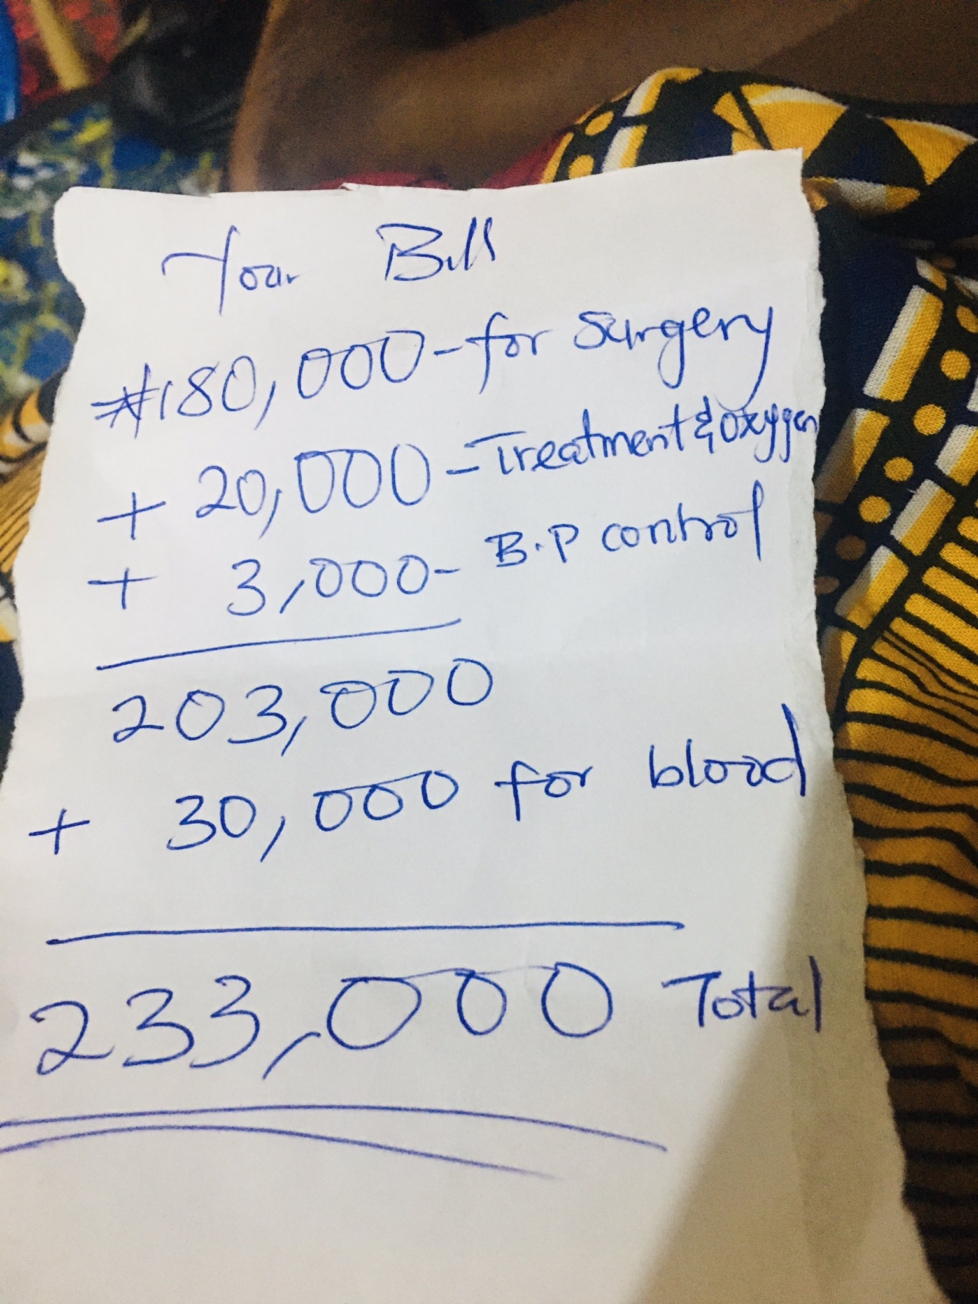 Your Bill
₦180,000 - for Surgery
+ 20,000 - Treatment & Oxygen
+ 3,000 - B.P control
203,000
+ 30,000 for blood
233,000 Total